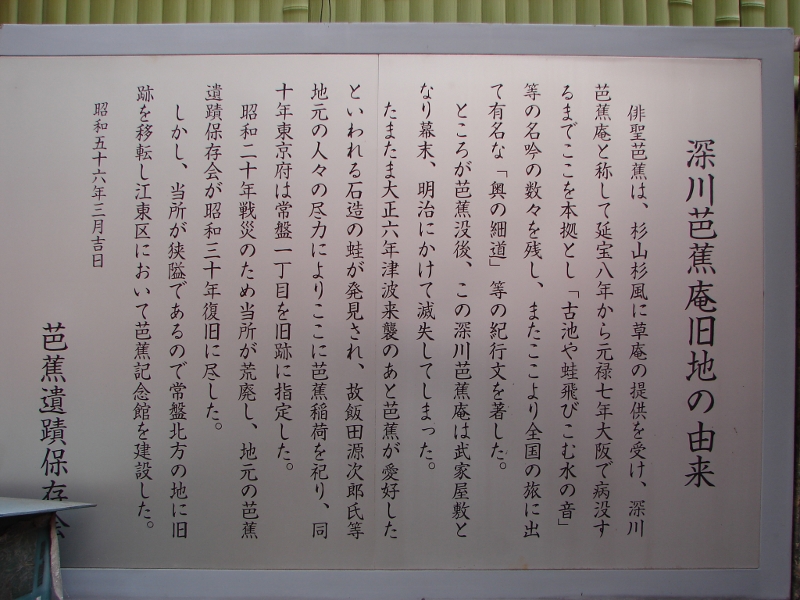 深川芭蕉庵旧地の由来
俳聖芭蕉は、杉山杉風に草庵の提供を受け、深川
芭蕉庵と称して延宝八年から元禄七年大阪で病没す
るまでここを本拠とし「古池や蛙飛びこむ水の音」
等の名吟の数々を残し、またここより全国の旅に出
て有名な「奥の細道」等の紀行文を著した。
ところが芭蕉没後、この深川芭蕉庵は武家屋敷と
なり幕末、明治にかけて滅失してしまった。
たまたま大正六年津波来襲のあと芭蕉が愛好した
といわれる石造の蛙が発見され、故飯田源次郎氏等
地元の人々の尽力によりここに芭蕉稲荷を祀り、同
十年東京府は常盤一丁目を旧跡に指定した。
昭和二十年戦災のため当所が荒廃し、地元の芭蕉
遺蹟保存会が昭和三十年復旧に尽した。
しかし、当所が狭隘であるので常盤北方の地に旧
跡を移転し江東区において芭蕉記念館を建設した。
昭和五十六年三月吉日
芭蕉遺蹟保存会